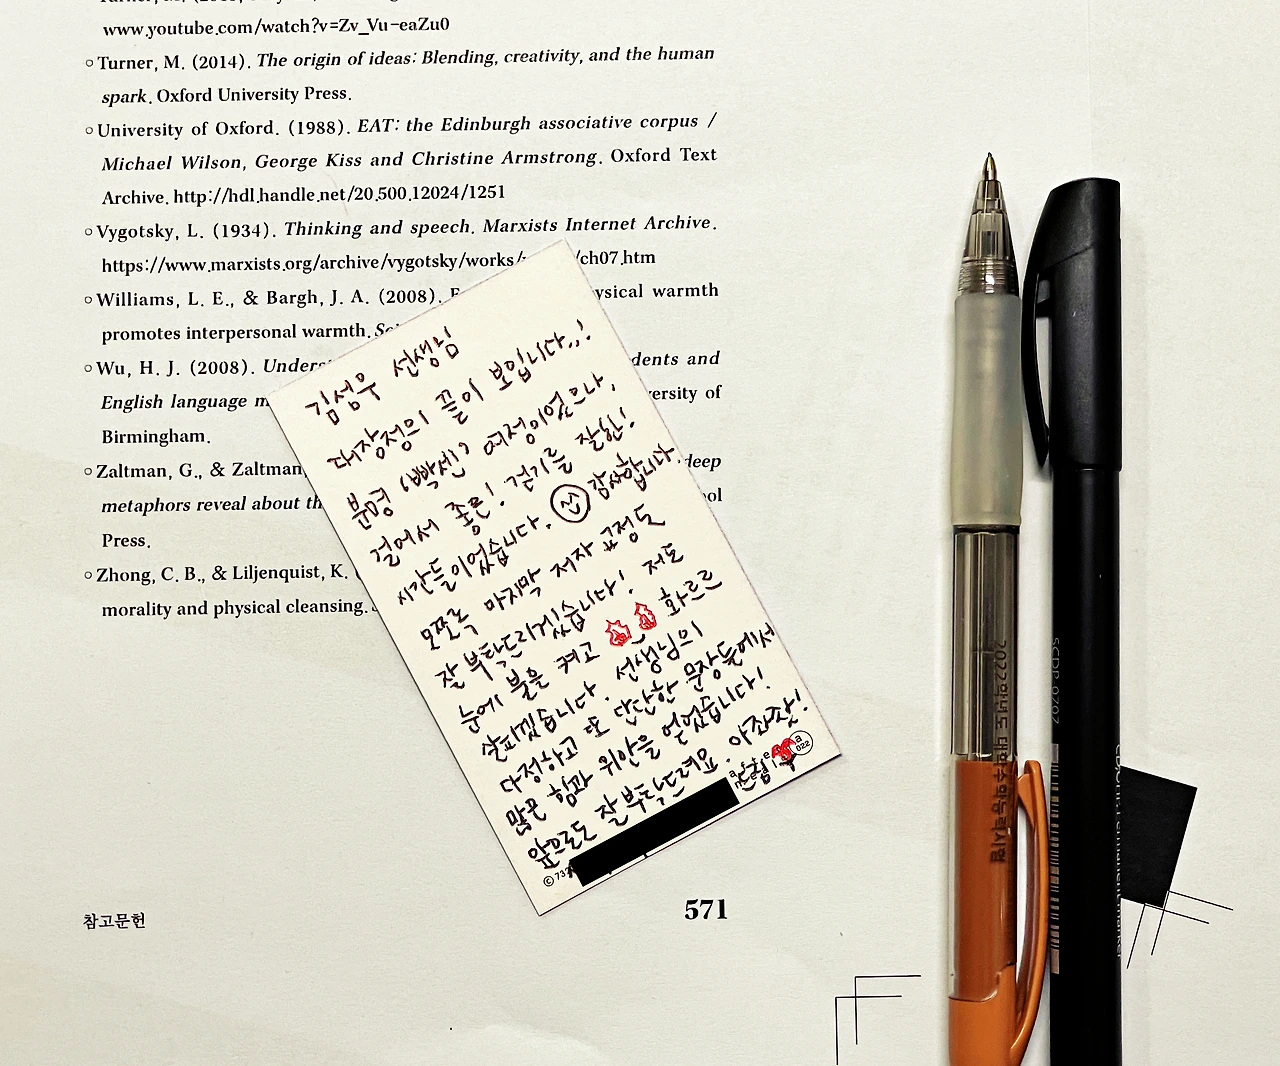 www.youtube.com/watch?v=Zv_Vu-eaZu0
◦ Turner, M. (2014). The origin of ideas: Blending, creativity, and the human
spark. Oxford University Press.
◦ University of Oxford. (1988). EAT: the Edinburgh associative corpus /
Michael Wilson, George Kiss and Christine Armstrong. Oxford Text
Archive. http://hdl.handle.net/20.500.12024/1251
◦ Vygotsky, L. (1934). Thinking and speech. Marxists Internet Archive.
https://www.marxists.org/archive/vygotsky/works/ /ch07.htm
◦ Williams, L. E., & Bargh, J. A. (2008). ysical warmth
promotes interpersonal warmth.
◦ Wu, H. J. (2008). Unders dents and
English language m versity of
Birmingham.
◦ Zaltman, G., & Zaltman, deep
metaphors reveal about th ol
Press.
◦ Zhong, C. B., & Liljenquist, K.
morality and physical cleansing.
김성우 선생님
대장정의 끝이 보입니다..!
분명 '빡센' 여정이었으나,
걸어서 좋은! 걷기를 잘한!
시간들이었습니다. 감사합니다
모쪼록 마지막 저자 교정도
잘 부탁드리겠습니다! 저도
눈에 불을 켜고 화르르
살피겠습니다. 선생님의
다정하고 또 단단한 문장들에서
많은 힘과 위안을 얻었습니다!
앞으로도 잘 부탁드려요. 아좌좟!
드림
참고문헌
571
2022학년도 대학수학능력시험